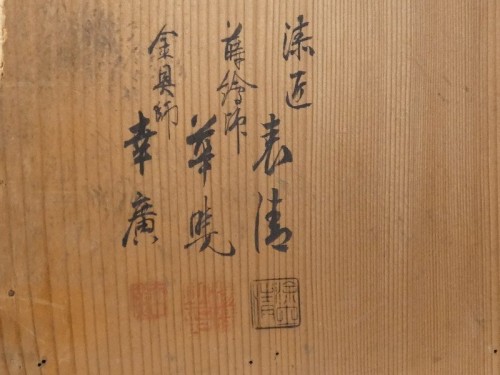 漆匠 表清
蒔繪師 華暁
金具師 幸廣